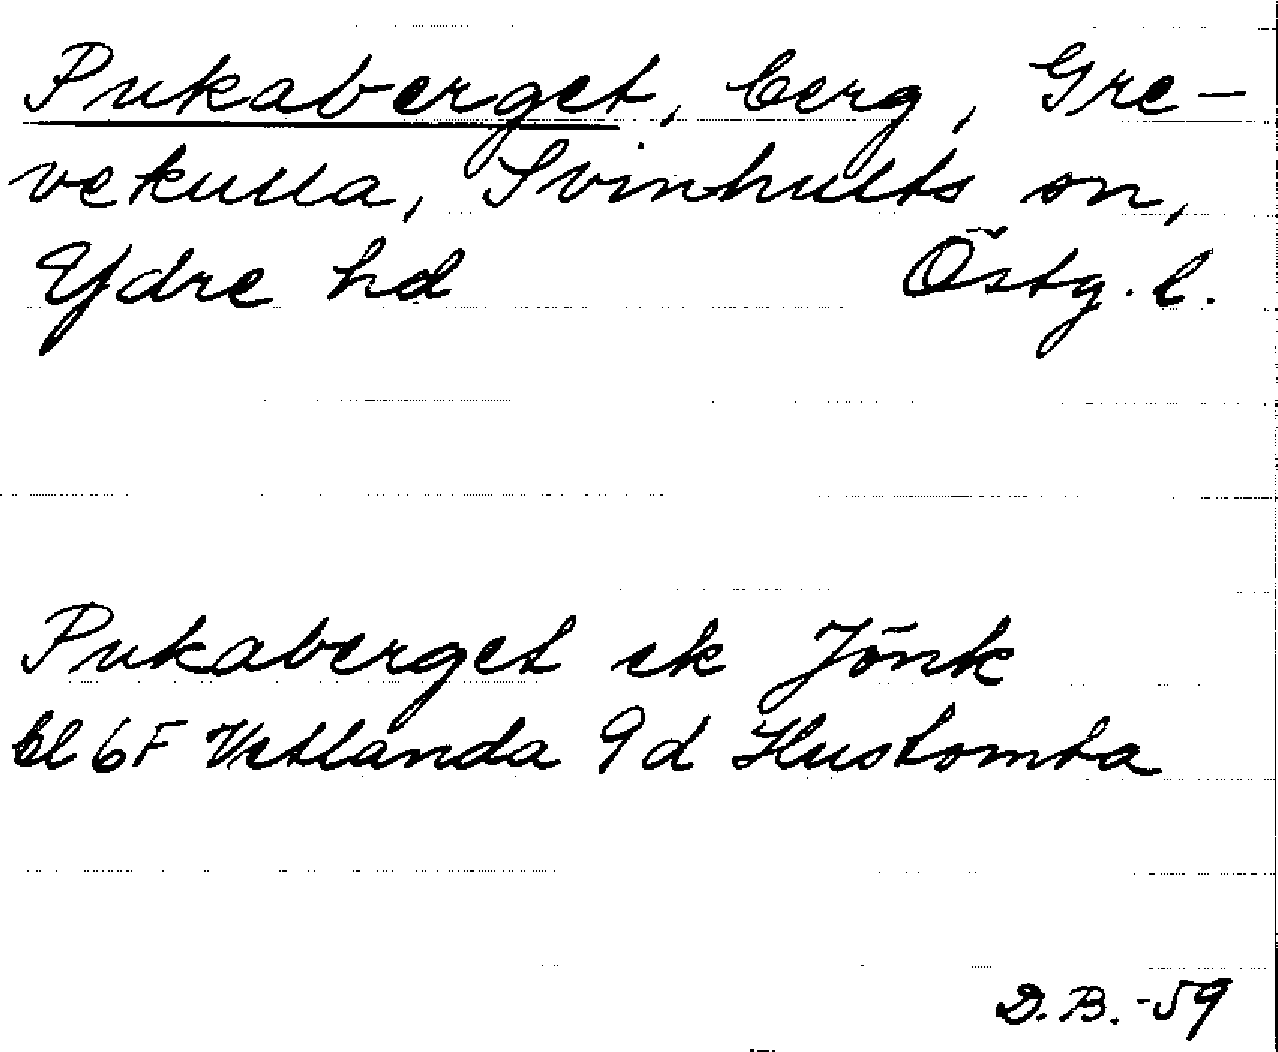 Pukaberget, berg, Gre-
vekulla, Svinhults sn,
Ydre hd Östg. l.
Pukaberget ek Jönk
bl 6F Vetlanda 9d Hustomta
D.B. -59